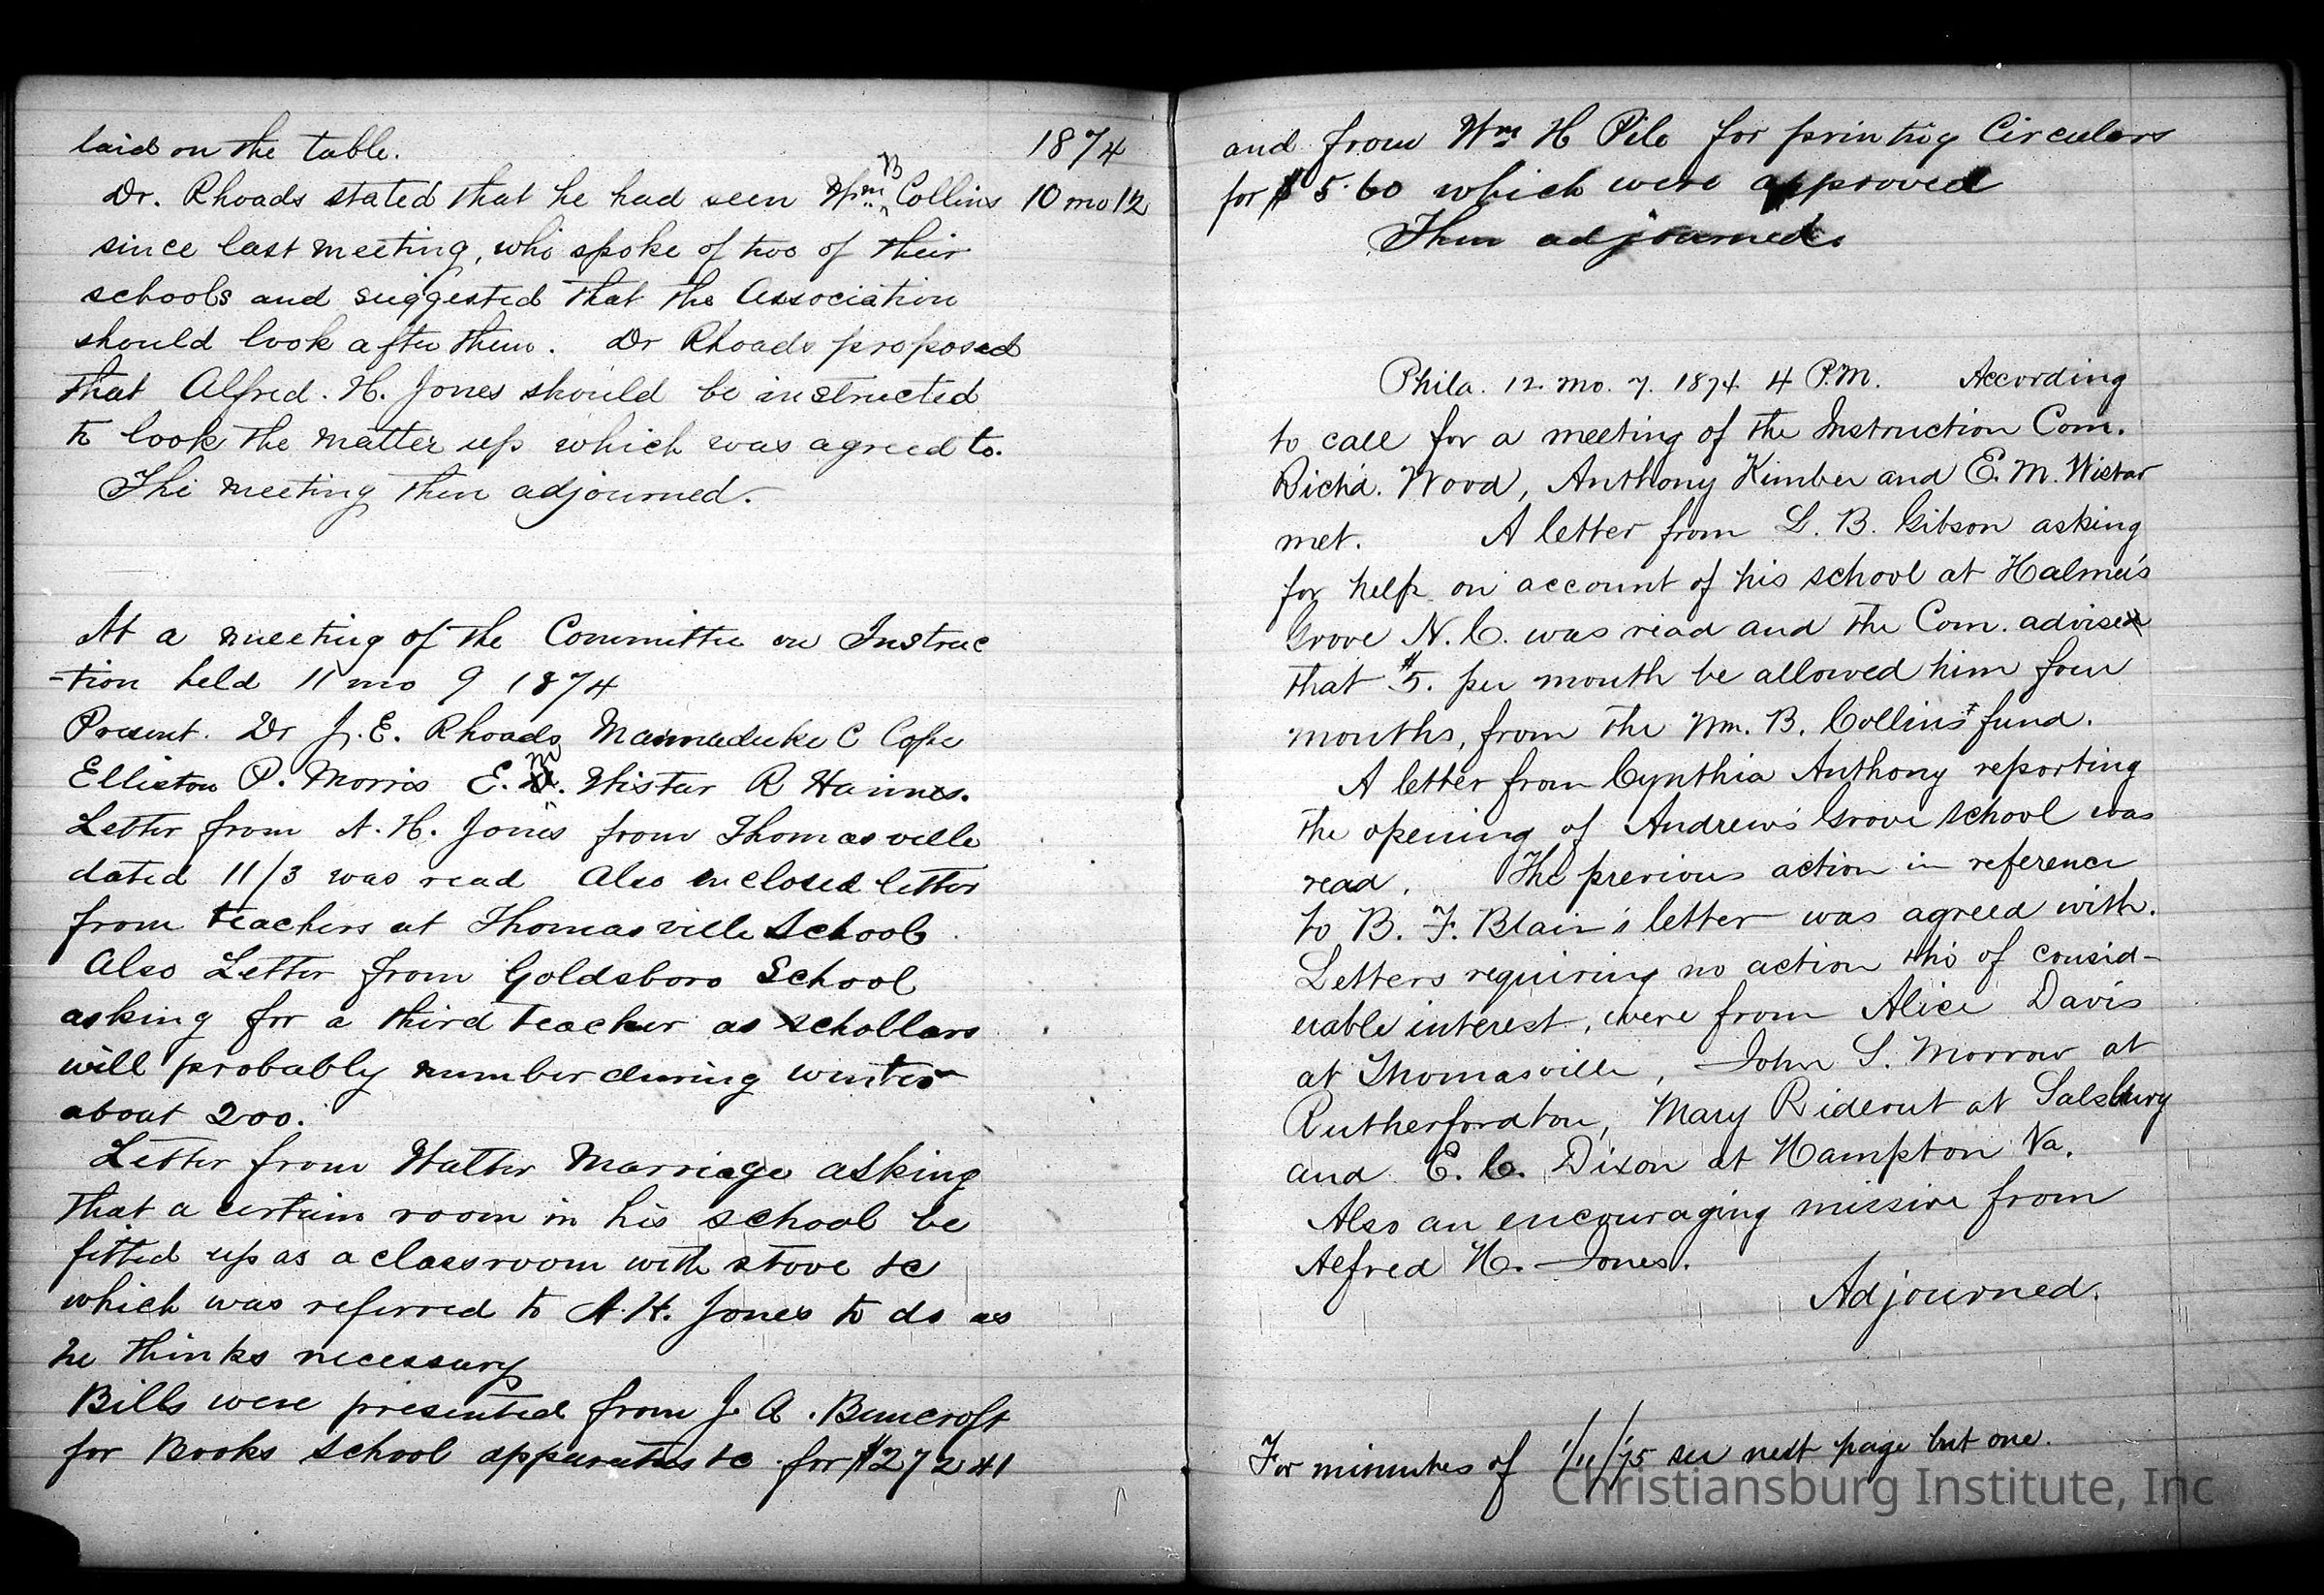 laid on the table.
1874
Dr. Rhoads stated that he had seen Wm B Collins
10 mo 12
since last meeting, who spoke of two of their
schools and suggested that the Association
should look after them. Dr Rhoads proposed
that Alfred. H. Jones should be instructed
to look the matter up which was agreed to.
The meeting then adjourned.
At a meeting of the Committee on Instruc
-tion held 11 mo 9 1874
Present. Dr J. E. Rhoads Marmaduke C Cope
Elliston P. Morris E. M. Wistar R Haines.
Letter from A. H. Jones from Thomasville
dated 11/3 was read Also enclosed letter
from teachers at Thomasville School
Also Letter from Goldsboro School
asking for a third teacher as schollars
will probably number during winter
about 200.
Letter from Walter Marriage asking
that a certain room in his school be
fitted up as a classroom with stove &c
which was referred to A. H. Jones to do as
he thinks necessary
Bills were presented from J. A. Bancroft
for Books school apparatus &c for $272 41
and from Wm H Pile for printing Circulars
for $5.60 which were approved
Then adjourned.
Phila. 12 mo. 7. 1874 4 P.M. According
to call for a meeting of the Instruction Com.
Rich'd. Wood, Anthony Kimber and E. M. Wistar
met. A letter from L. B. Gibson asking
for help on account of his school at Halmer's
Grove N. C. was read and the Com. advise
that $5. per month be allowed him four
months, from the Wm. B. Collins fund.
A letter from Cynthia Anthony reporting
the opening of Andrew's Grove school was
read. The previous action in reference
to B. F. Blair's letter was agreed with.
Letters requiring no action tho' of consid-
erable interest, were from Alice Davis
at Thomasville, John S. Morrow at
Rutherfordton, Mary Rideout at Salsbury
and E. C. Dixon at Hampton Va.
Also an encouraging missive from
Alfred H. Jones.
Adjourned.
For minutes of 1/11/75 see next page but one.
Christiansburg Institute, Inc